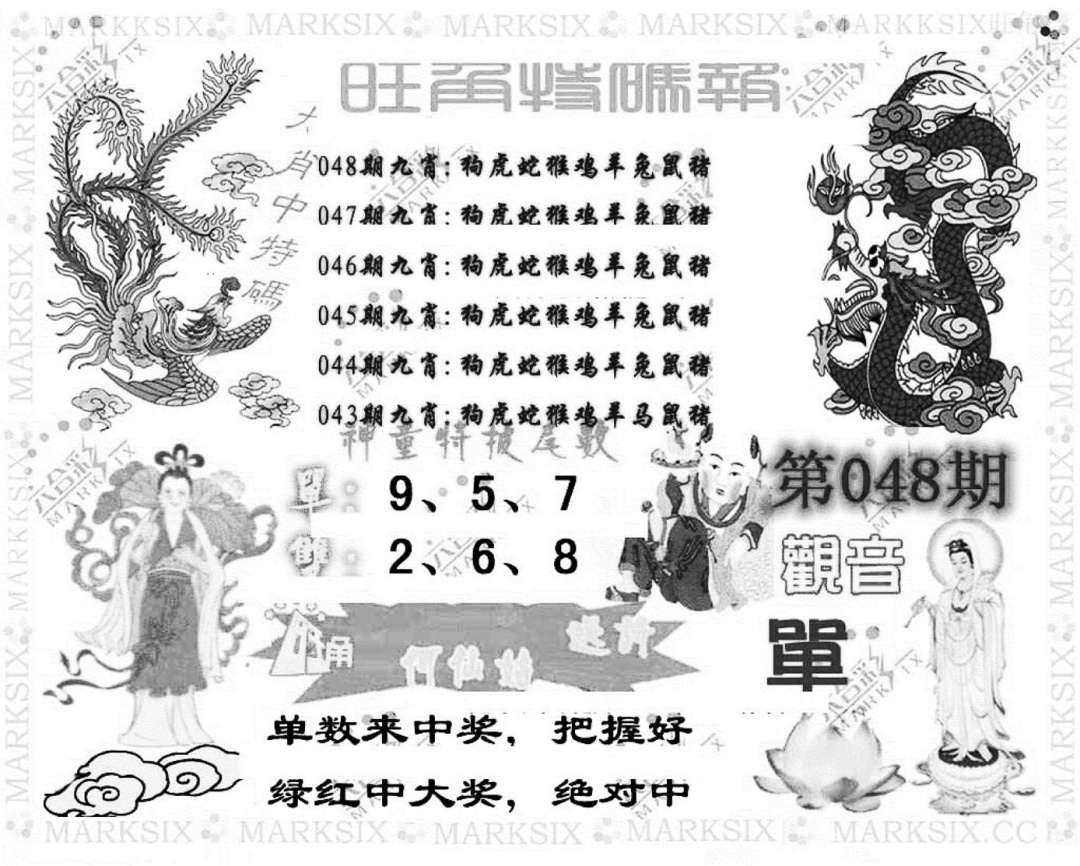 MARKSIX MARKKSIX MARKSIX MARKSIX MARKSIX MARKKSIX
旺角特碼報
六肖中特碼
048期九肖:狗虎蛇猴鸡羊兔鼠猪
047期九肖:狗虎蛇猴鸡羊兔鼠猪
046期九肖:狗虎蛇猴鸡羊兔鼠猪
045期九肖:狗虎蛇猴鸡羊兔鼠猪
044期九肖:狗虎蛇猴鸡羊兔鼠猪
043期九肖:狗虎蛇猴鸡羊马鼠猪
神童特披尾数
單: 9、5、7
雙: 2、6、8
第048期
觀音
單
何仙姑
单数来中奖，把握好
绿红中大奖，绝对中
MARKSIX MARKSIX MARKSIX MARKSIX MARKSIX.CC